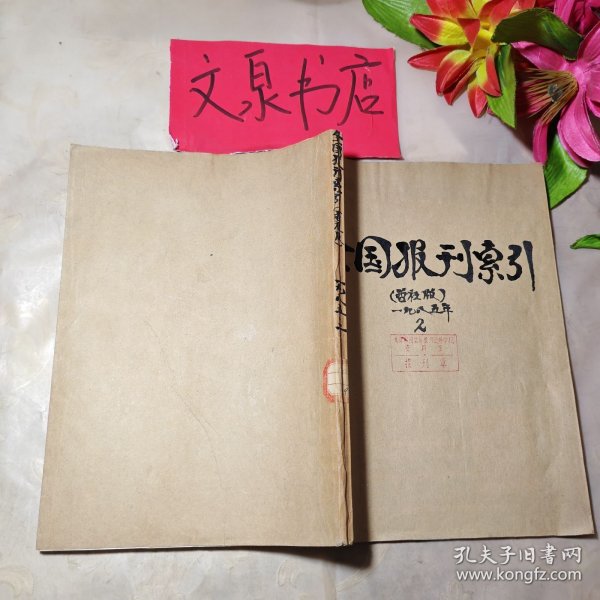 文泉书店
全国报刊索引(哲社版)
国报刊索引
(哲社版)
一九八五年
2
孔夫子旧书网
www.kongfz.com